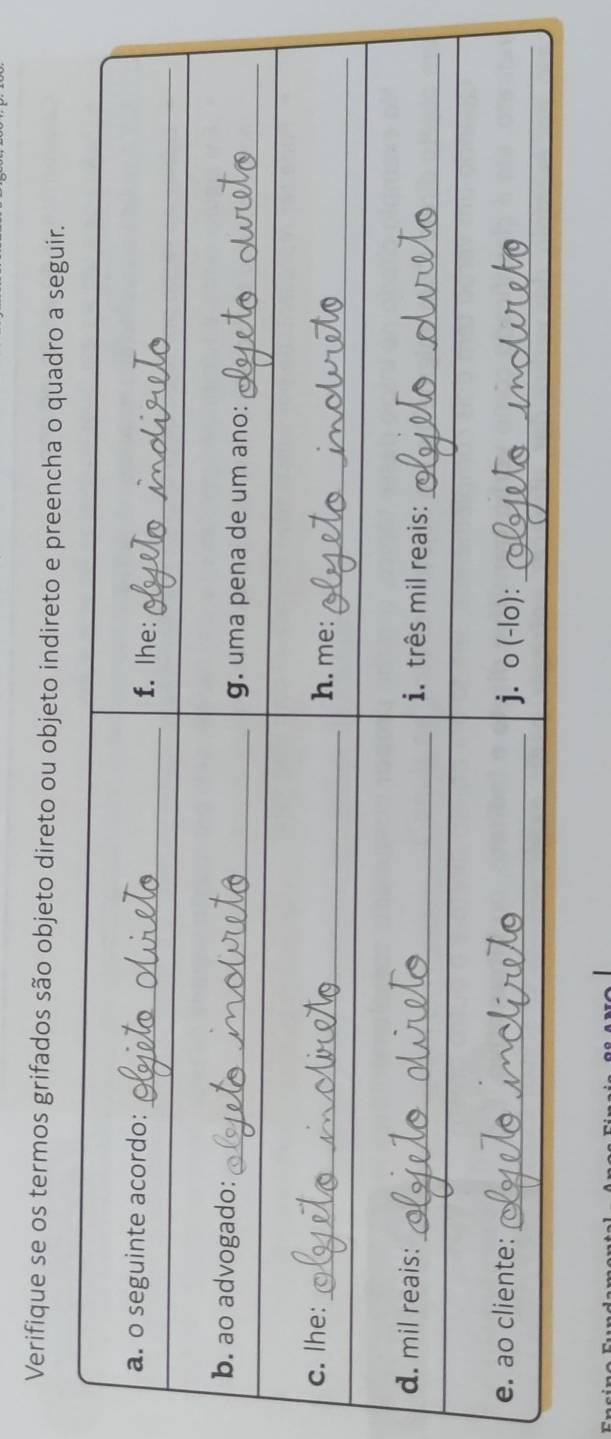 Verifique se os termos grifados são objeto direto ou objeto indireto e preencha o quadro a seguir.
a. o seguinte acordo: objeto direto
f. lhe: objeto indireto
b. ao advogado: objeto indireto
g. uma pena de um ano: objeto direto
c. lhe: objeto indireto
h. me: objeto indireto
d. mil reais: objeto direto
i. três mil reais: objeto direto
e. ao cliente: objeto indireto
j. o (-lo): objeto indireto